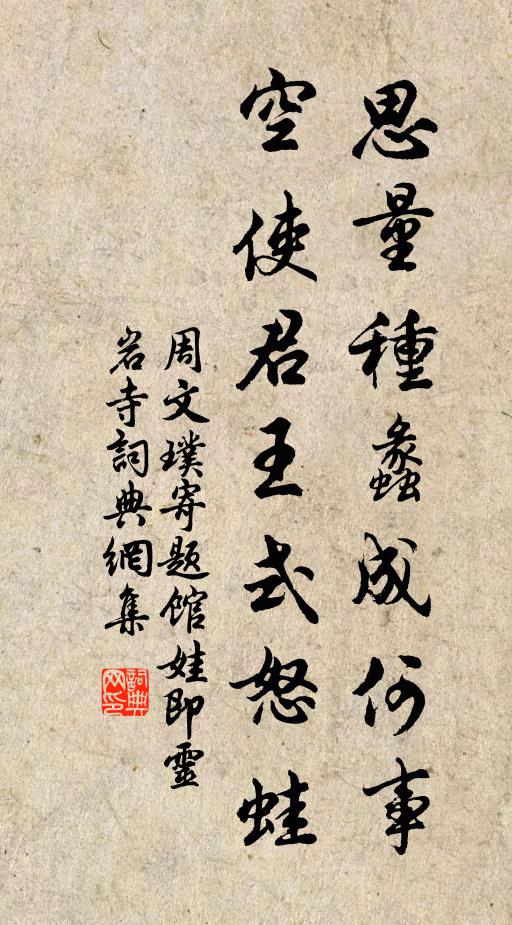 思量種蠡成何事
空使君王式怒蛙
周文璞寄题館娃即靈
岩寺詞典網集
詞典网印